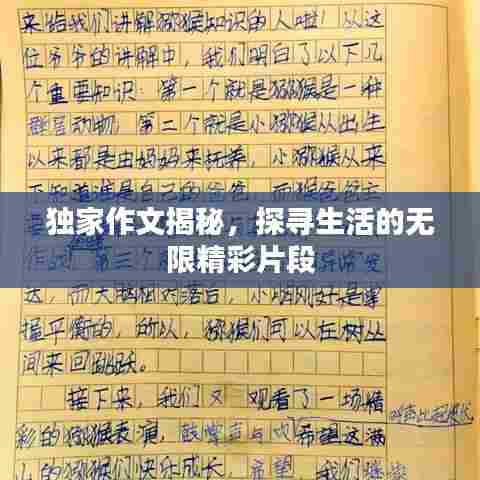 来给我们讲解猕猴知识的人啦！从这
位爷爷的讲解中，我们明白了以下几
个重要知识：第一个就是猕猴是一种
群居动物，第二个就是小猕猴从出生
以来都是由妈妈来抚养，小猕猴从来
不知道谁是自己的爸爸，而猴爸爸主
独家作文揭秘，探寻生活的无
限精彩片段
第三个
达，而大脑相对落后，小脑刚好是掌
握平衡的，所以，猕猴们可以在树丛
间来回跳跃。
接下来，我们又观看了一场精
彩的猕猴表演，鼓掌声与欢
希望这满
山的猕猴们快乐成长，希望，我们